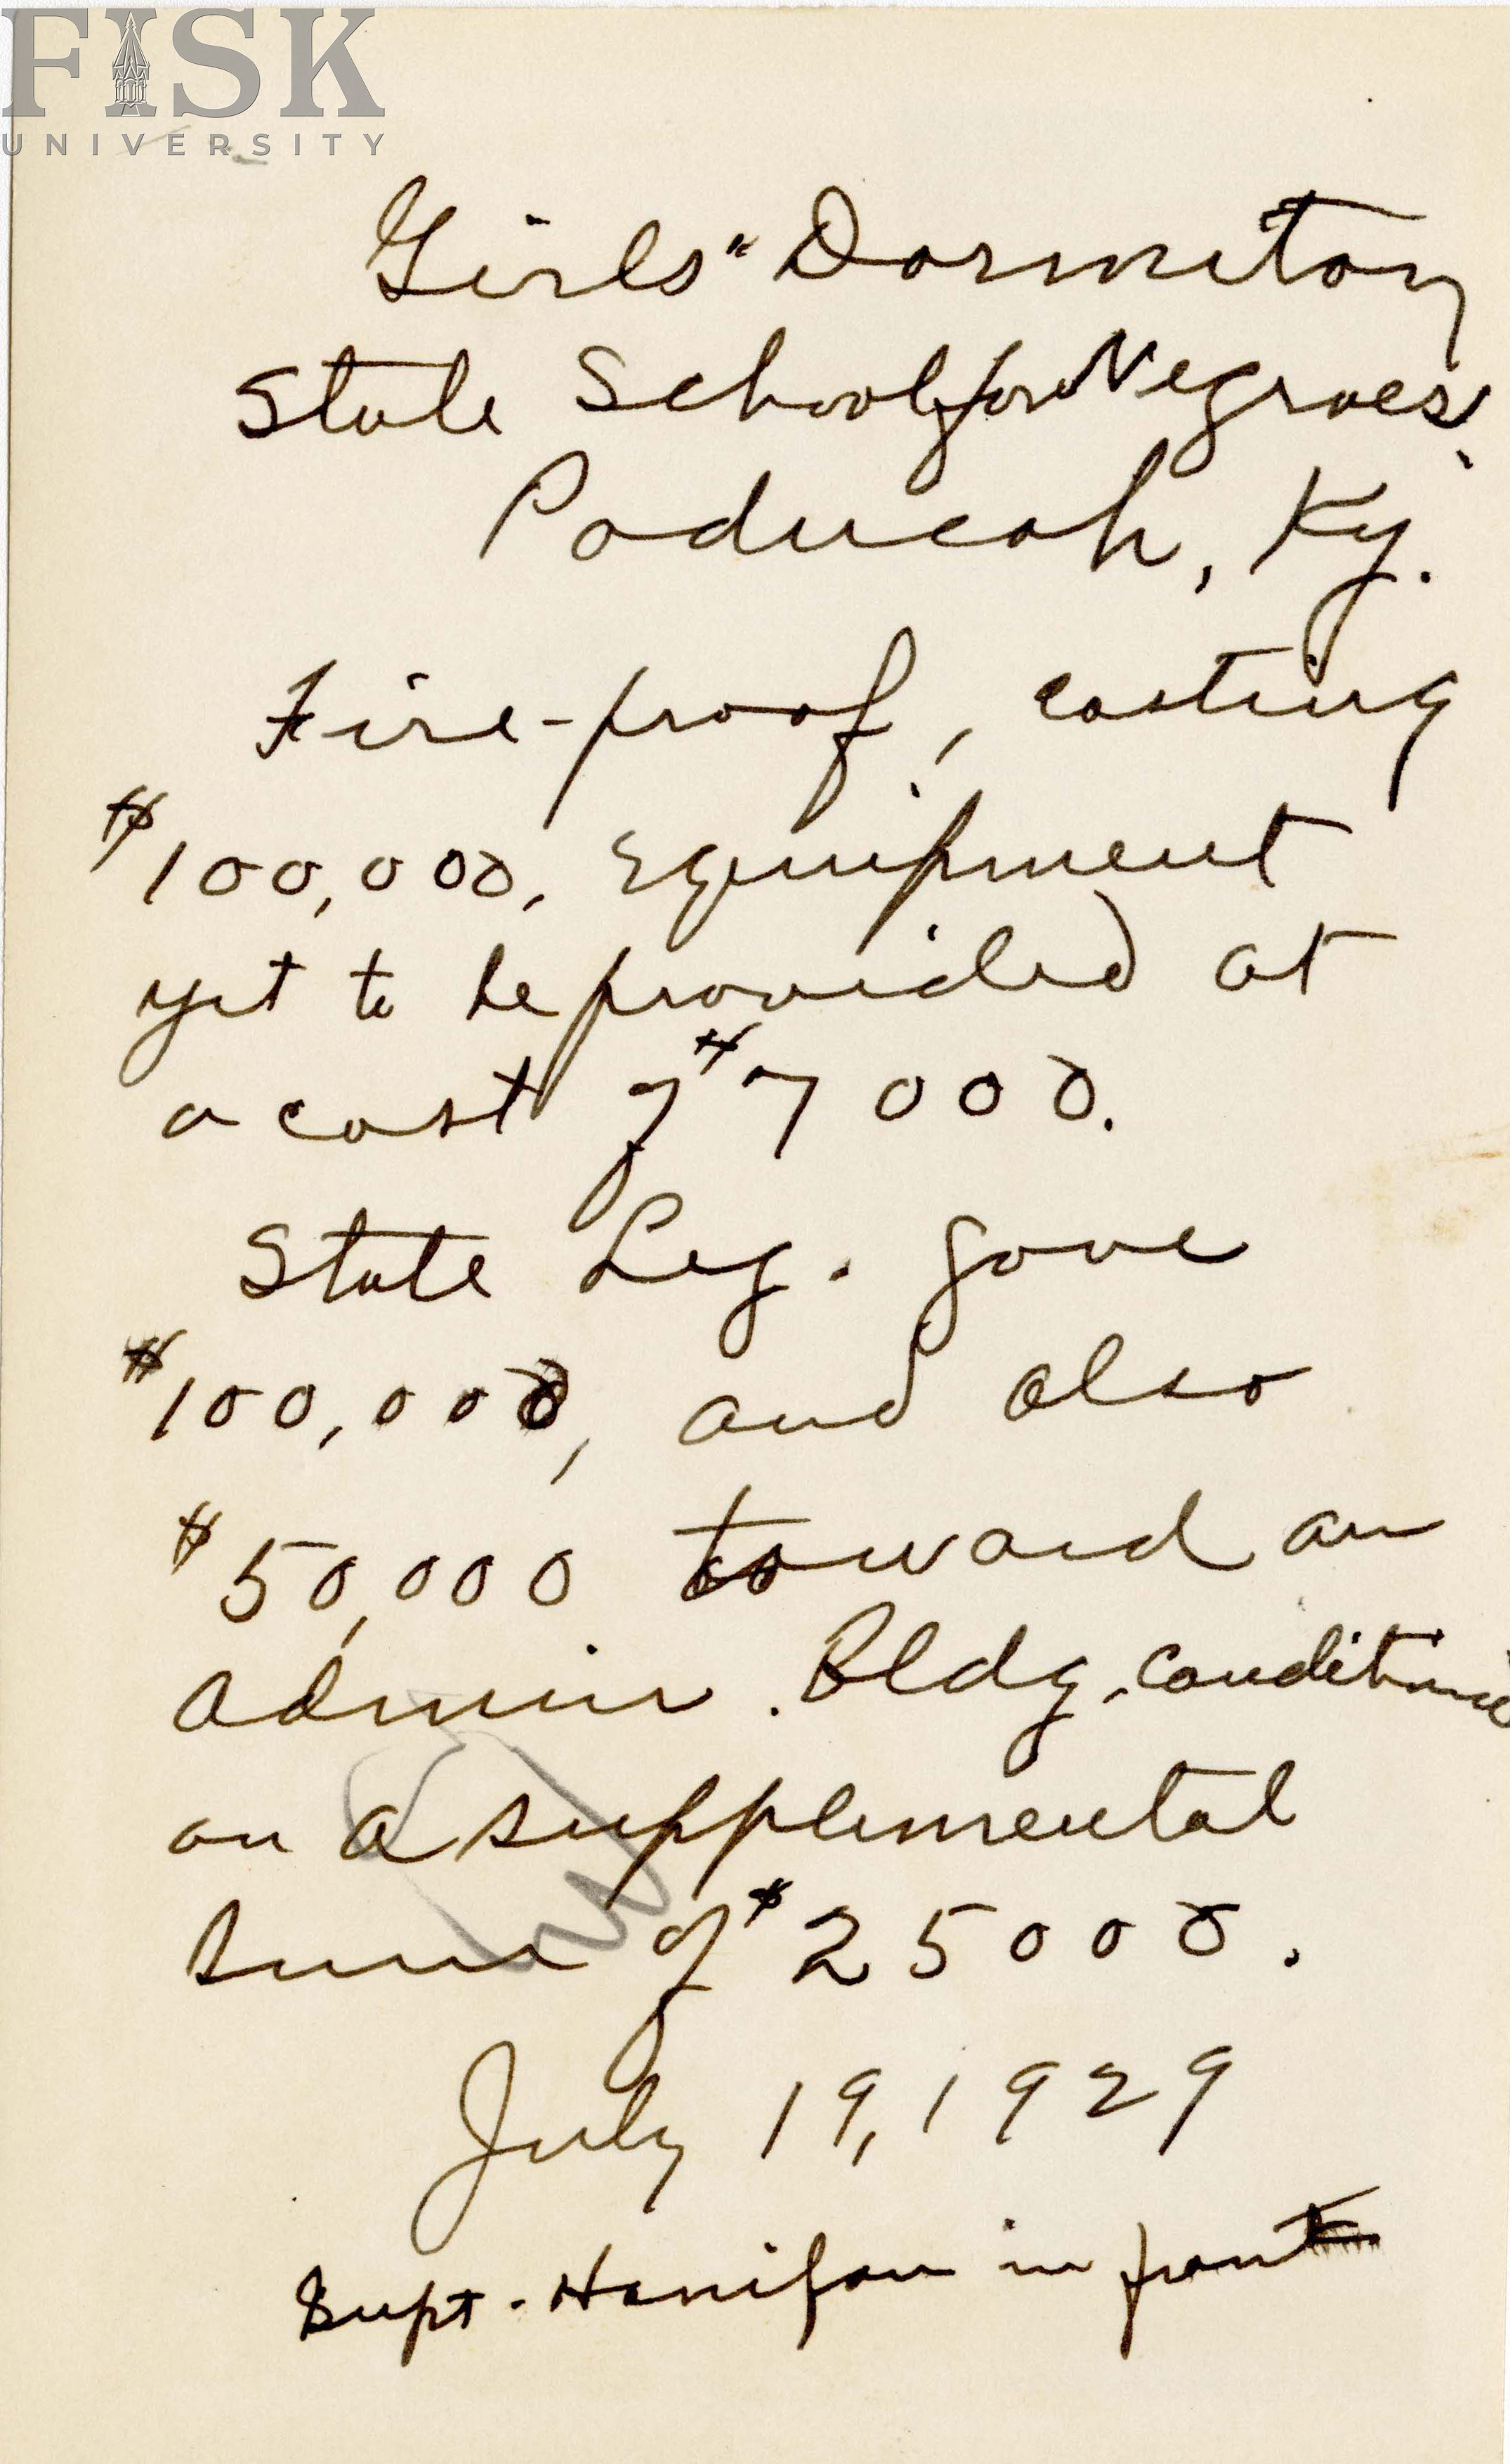 FISK
UNIVERSITY
Girls" Dormitory
State School for Negroes,
Paducah, Ky.
Fire-proof, costing
$100,000, Equipment
yet to be provided at
a cost of $7000.
State Leg. gave
$100,000, and also
$50,000 toward an
Admin. Bldg. conditioned
on a supplemental
sum of $25000.
July 19, 1929
Supt. Hanifan in front